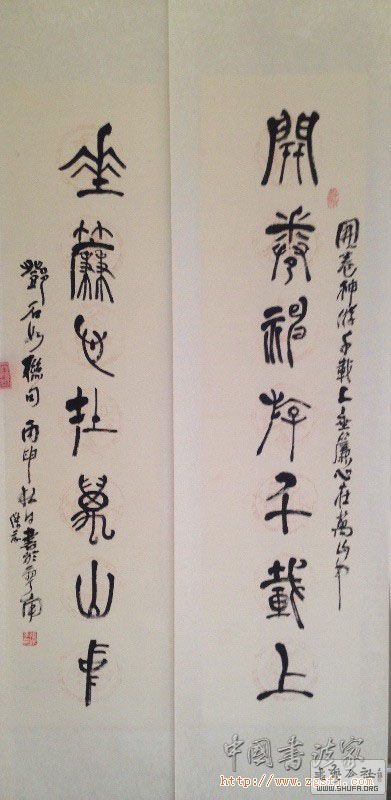 開卷神游千載上
垂簾心在萬山中
開卷神游千載上垂簾心在萬山中
鄧石如聯句丙申秋日書於雲南
中國書法家
http://www.zgsfj.com
書藝公社
WWW.SHUFA.ORG